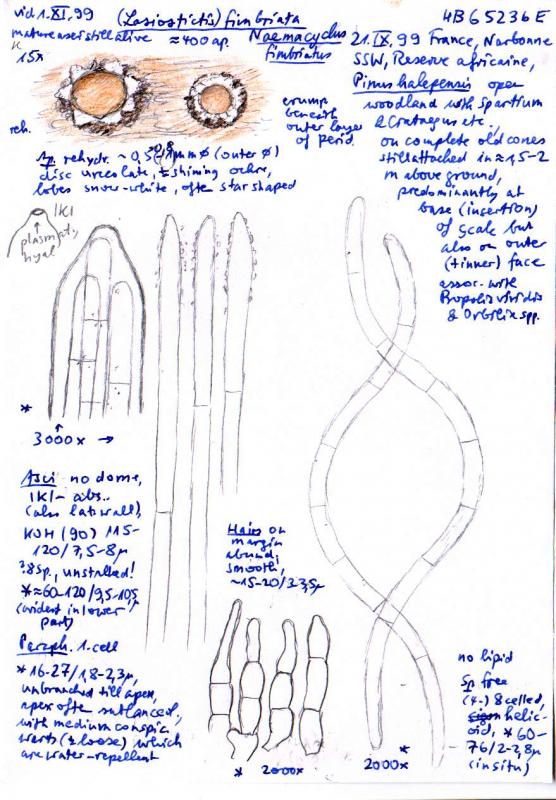 vid. 1.XI.99 (Lasiostictis) fimbriata
HB 6523b E
mature asci still alive ≈400 ap.
Naemacyclus fimbriatus
21.IX.99 France, Narbonne
SSW, Reserve africaine,
Pinus halepensis open
woodland with Spartium
& Crataegus etc.,
on complete old cones
still attached in ≈1,5-2
m above ground,
predominantly at
base (insertion)
of scale but
also on outer
(+inner) face
assoc. with
Propolis viridis
& Orbilia spp.
15x
reh.
crump
beneath
outer layer
of perid.
Ap. rehydr. ~0,5- mm ø (outer ø)
disc urceolate, ± shining ochre,
lobes snow-white, often star shaped
IKI
plasm
hyal
*
3000x →
Asci no dome,
IKI- abs..
(also lat. wall),
KOH (90) 115-
120/7,5-8µ
?8sp., unstalked!
*≈60-120/9,5-10,5
(evident in lower
part)
Paraph. 1-cell
*16-27/1,8-2,3µ,
unbranched till apex,
apex often sublanceol,
with medium conspic.
warts (± loose) which
are water-repellent
Hairs on
margin
abund.
smooth,
~15-20/2-3,5µ
* 2000x
* 2000x
no lipid
Sp free
(4-) 8 celled,
helic-
oid, *60-
76/2-2,8µ
(in situ)